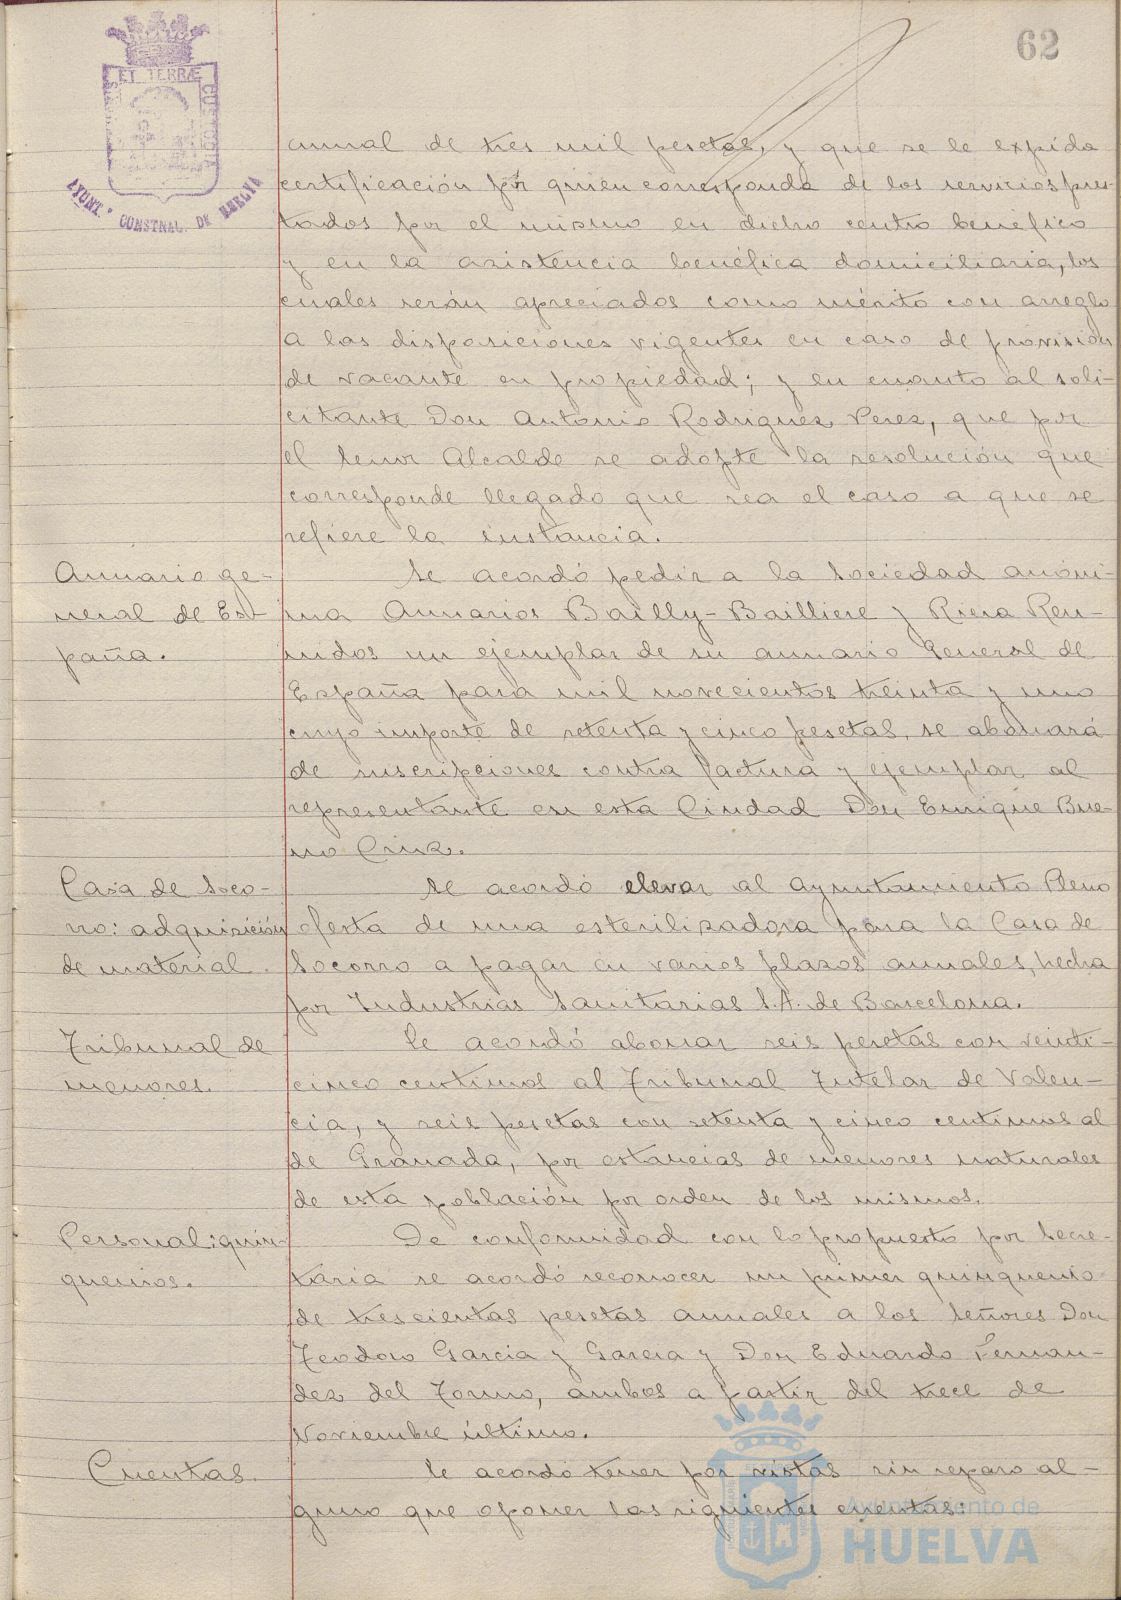 62
ET TERRÆ
CUSTODIA
AYUNT.º CONSTNAL. DE HUELVA
anual de tres mil pesetas, y que se le expida
certificación por quien corresponda de los servicios pres-
tados por el mismo en dicho centro benéfico
y en la asistencia benéfica domiciliaria, los
cuales serán apreciados como mérito con arreglo
a las disposiciones vigentes en caso de provisión
de vacante en propiedad; y en cuanto al soli-
citante Don Antonio Rodriguez Perez, que por
el Senor Alcalde se adopte la resolución que
corresponde llegado que sea el caso a que se
refiere la instancia.
Anuario ge-
neral de Es-
paña.
Se acordó pedir a la Sociedad anóni-
ma Anuarios Bailly-Bailliere y Riera Reu-
nidos un ejemplar de su anuario General de
España para mil novecientos treinta y uno
cuyo importe de setenta y cinco pesetas, se abonará
de suscripciones contra factura y ejemplar al
representante en esta Ciudad Don Enrique Bue-
no Cruz.
Casa de Soco-
rro: adquisición
de material.
Se acordó elevar al Ayuntamiento Pleno
oferta de una esterilizadora para la Casa de
Socorro a pagar en varios plazos anuales, hecha
por Industrias Sanitarias S.A. de Barcelona.
Tribunal de
menores.
Se acordó abonar seis pesetas con veinti-
cinco centimos al Tribunal Tutelar de Valen-
cia, y seis pesetas con setenta y cinco centimos al
de Granada, por estancias de menores naturales
de esta población por orden de los mismos.
Personal: quin-
quenios.
De conformidad con lo propuesto por Secre-
taria se acordó reconocer un primer quinquenio
de trescientas pesetas anuales a los señores Don
Teodoro Garcia y Garcia y Don Eduardo Fernan-
dez del Torno, ambos a partir del trece de
Noviembre último.
Cuentas.
Se acordó tener por vistas sin reparo al-
guno que oponer las siguientes cuentas:
Ayuntamiento de
HUELVA